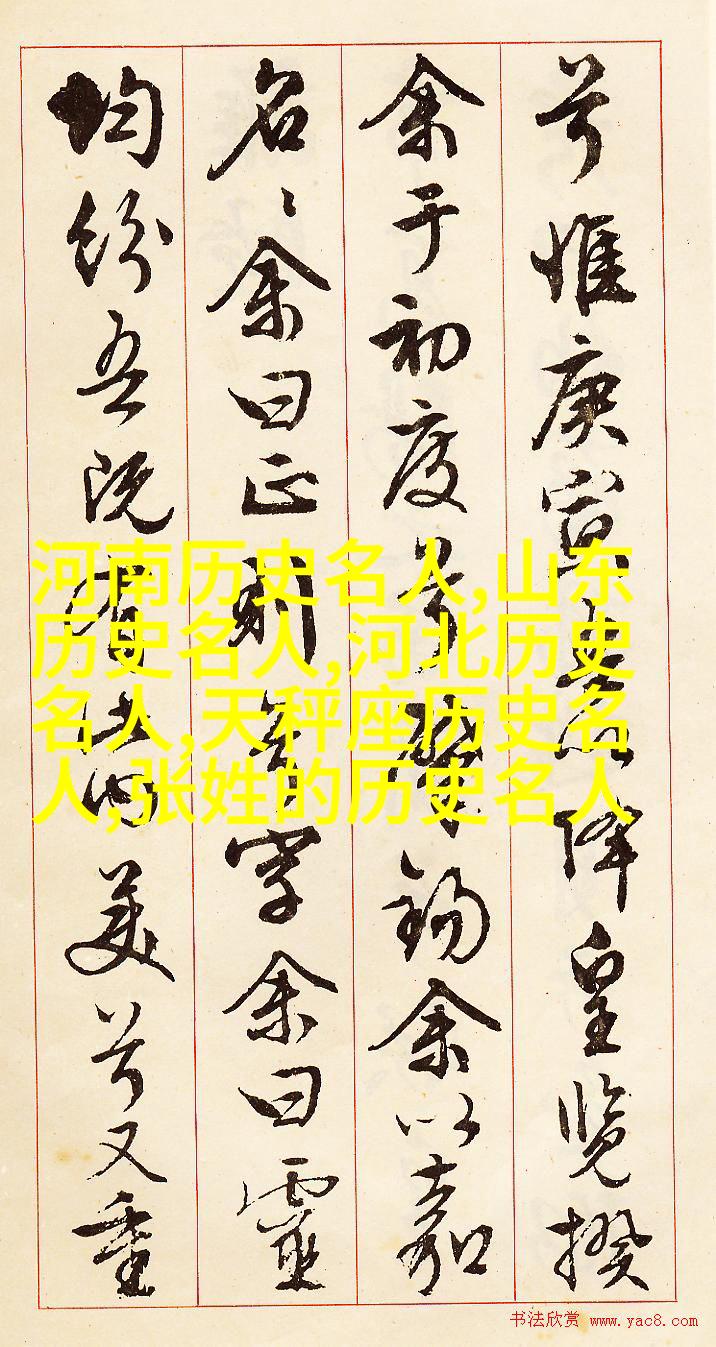 兮惟庚寅吾以降皇覽揆
余于初度兮肇錫余以嘉
名〻余曰正則兮字余曰靈
均紛吾既有此内美兮又重
河南历史名人,山东
历史名人,河北历史
名人,天秤座历史名
人,张姓的历史名人
书法欣赏 www.yac8.com